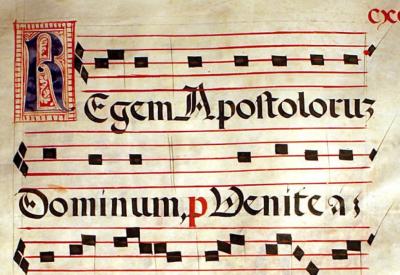 cxc
REgem Apostoloruz
Dominum, p Venite as